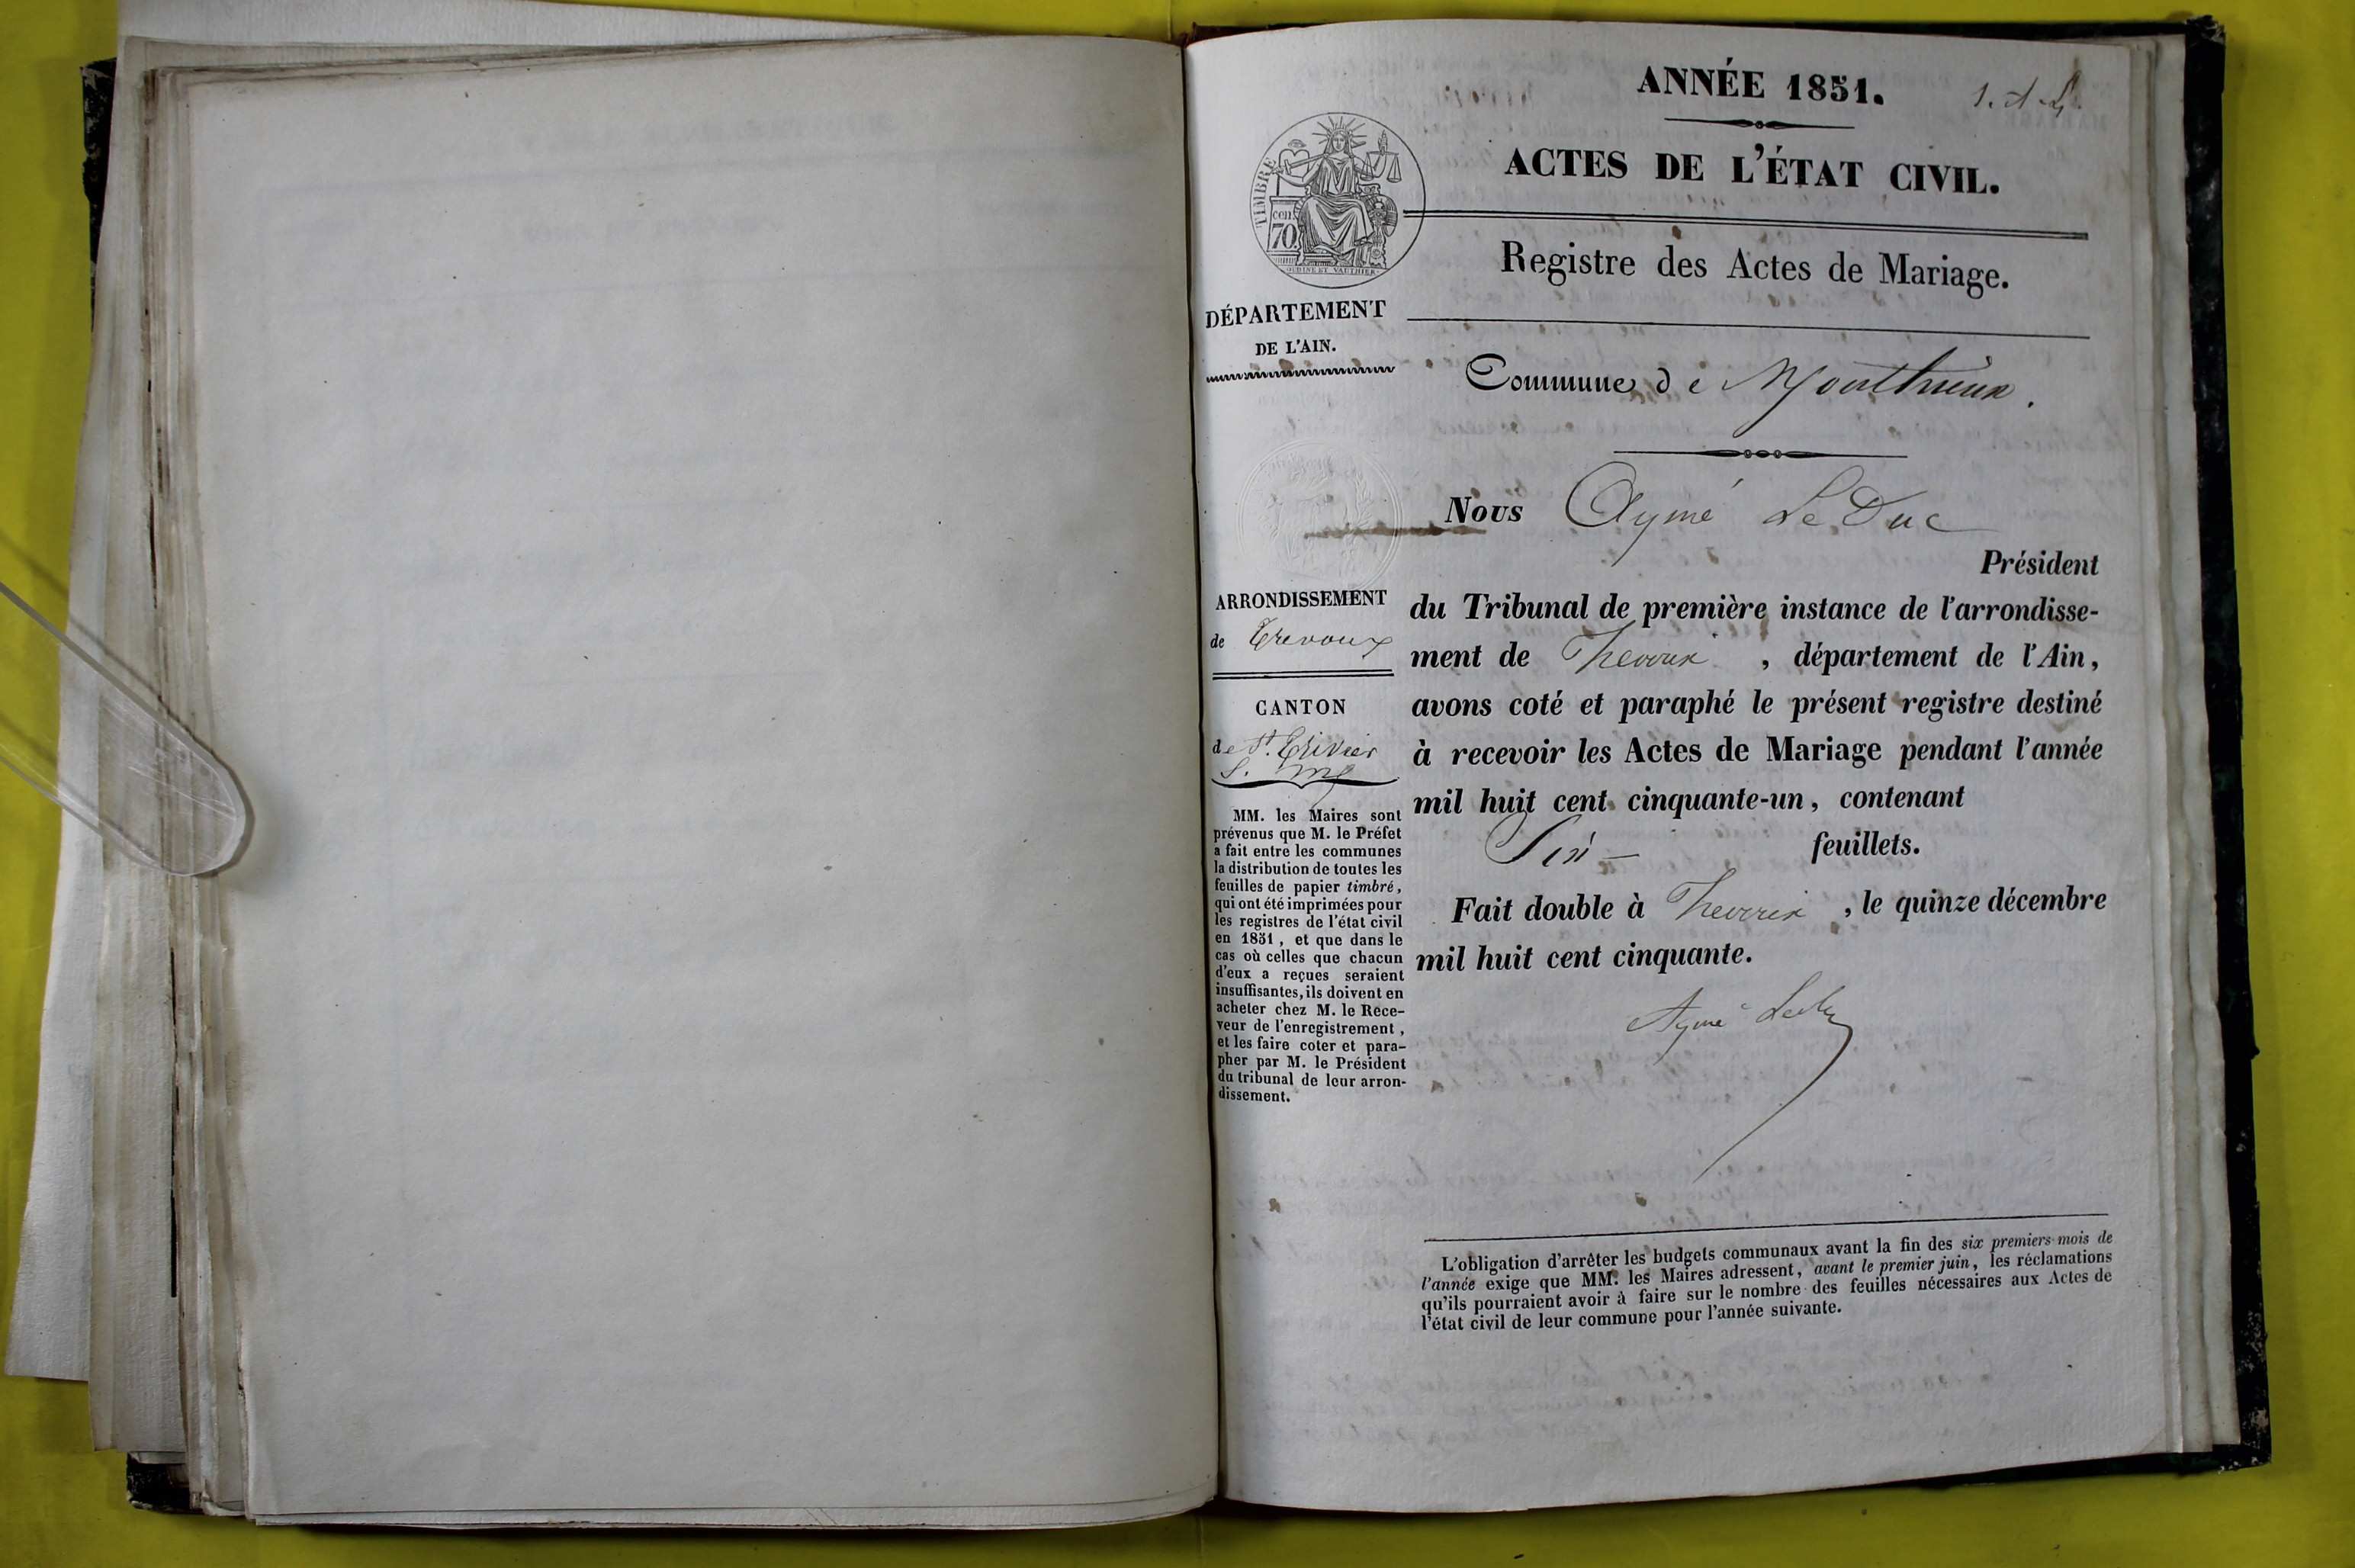 ANNÉE 1851.
1. A L.
ACTES DE L'ÉTAT CIVIL.
TIMBRE
cen
70.
OUDINE ET VAUTHIER
Registre des Actes de Mariage.
DÉPARTEMENT
DE L'AIN.
Commune de Monthieux.
Nous Aymé Le Duc
Président
du Tribunal de première instance de l'arrondisse-
ment de Trevoux, département de l'Ain,
avons coté et paraphé le présent registre destiné
à recevoir les Actes de Mariage pendant l'année
mil huit cent cinquante-un, contenant
Six feuillets.
Fait double à Trevoux, le quinze décembre
mil huit cent cinquante.
Aymé Leduc
ARRONDISSEMENT
de Trevoux
CANTON
de St. Trivier
MM. les Maires sont
prévenus que M. le Préfet
a fait entre les communes
la distribution de toutes les
feuilles de papier timbré,
qui ont été imprimées pour
les registres de l'état civil
en 1851, et que dans le
cas où celles que chacun
d'eux a reçues seraient
insuffisantes, ils doivent en
acheter chez M. le Rece-
veur de l'enregistrement,
et les faire coter et para-
pher par M. le Président
du tribunal de leur arron-
dissement.
L'obligation d'arrêter les budgets communaux avant la fin des six premiers mois de
l'année exige que MM. les Maires adressent, avant le premier juin, les réclamations
qu'ils pourraient avoir à faire sur le nombre des feuilles nécessaires aux Actes de
l'état civil de leur commune pour l'année suivante.